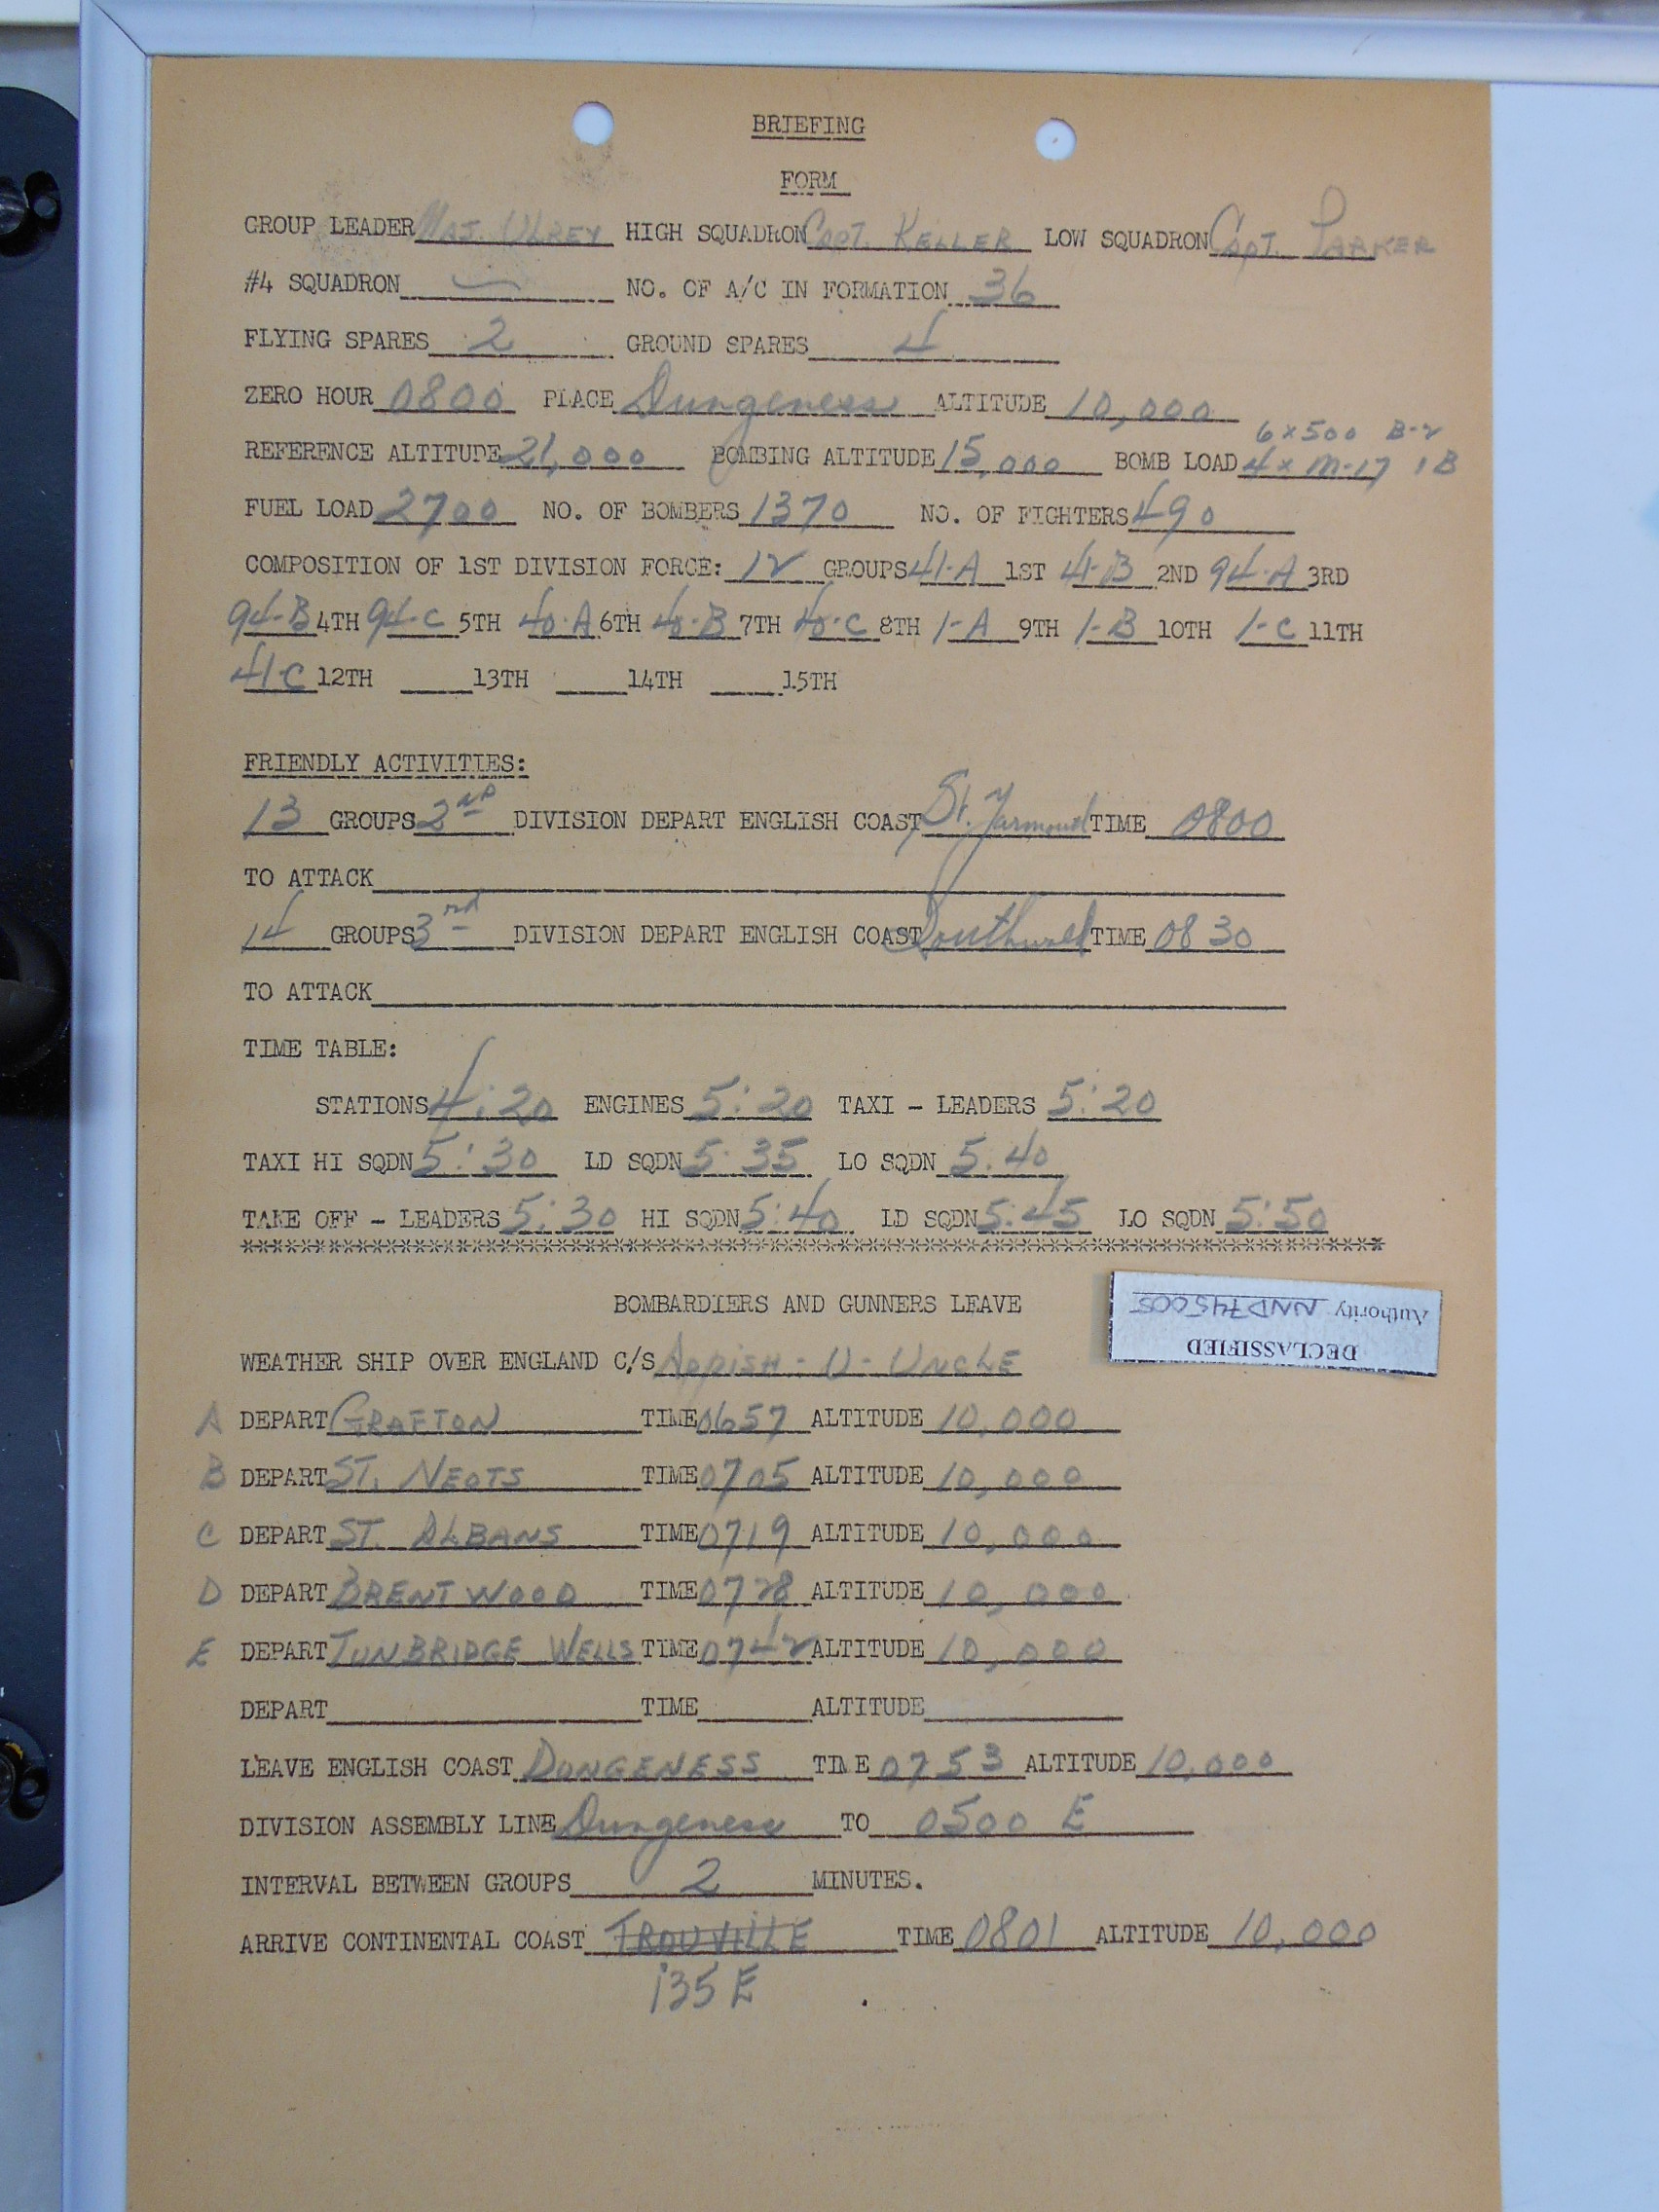 BRIEFING
FORM
GROUP LEADER Maj. Ulrey HIGH SQUADRON Capt. Keller LOW SQUADRON Capt. Parker
#4 SQUADRON — NO. OF A/C IN FORMATION 36
FLYING SPARES 2 GROUND SPARES 4
ZERO HOUR 0800 PLACE Dungeness ALTITUDE 10,000
6x500 B-2
REFERENCE ALTITUDE 21,000 BOMBING ALTITUDE 15,000 BOMB LOAD 4x M-17 1B
FUEL LOAD 2700 NO. OF BOMBERS 1370 NO. OF FIGHTERS 490
COMPOSITION OF 1ST DIVISION FORCE: 12 GROUPS 41-A 1ST 41-B 2ND 94-A 3RD
94-B 4TH 94-C 5TH 40-A 6TH 40-B 7TH 40-C 8TH 1-A 9TH 1-B 10TH 1-C 11TH
41-C 12TH ____13TH ____14TH ____15TH
FRIENDLY ACTIVITIES:
13 GROUPS 2nd DIVISION DEPART ENGLISH COAST TIME 0800
TO ATTACK
14 GROUPS 3rd DIVISION DEPART ENGLISH COAST TIME 0830
TO ATTACK
TIME TABLE:
STATIONS 4:20 ENGINES 5:20 TAXI - LEADERS 5:20
TAXI HI SQDN 5:30 LD SQDN 5:35 LO SQDN 5:40
TAKE OFF - LEADERS 5:30 HI SQDN 5:40 LD SQDN 5:45 LO SQDN 5:50
BOMBARDIERS AND GUNNERS LEAVE
DECLASSIFIED
Authority NND745005
WEATHER SHIP OVER ENGLAND C/S - U - UNCLE
A DEPART GRAFTON TIME 0657 ALTITUDE 10,000
B DEPART ST. NEOTS TIME 0705 ALTITUDE 10,000
C DEPART ST. ALBANS TIME 0719 ALTITUDE 10,000
D DEPART BRENTWOOD TIME 0728 ALTITUDE 10,000
E DEPART TUNBRIDGE WELLS TIME 0742 ALTITUDE 10,000
DEPART TIME ALTITUDE
LEAVE ENGLISH COAST DUNGENESS TIME 0753 ALTITUDE 10,000
DIVISION ASSEMBLY LINE Dungeness TO 0500 E
INTERVAL BETWEEN GROUPS 2 MINUTES.
ARRIVE CONTINENTAL COAST TROUVILLE TIME 0801 ALTITUDE 10,000
135 E